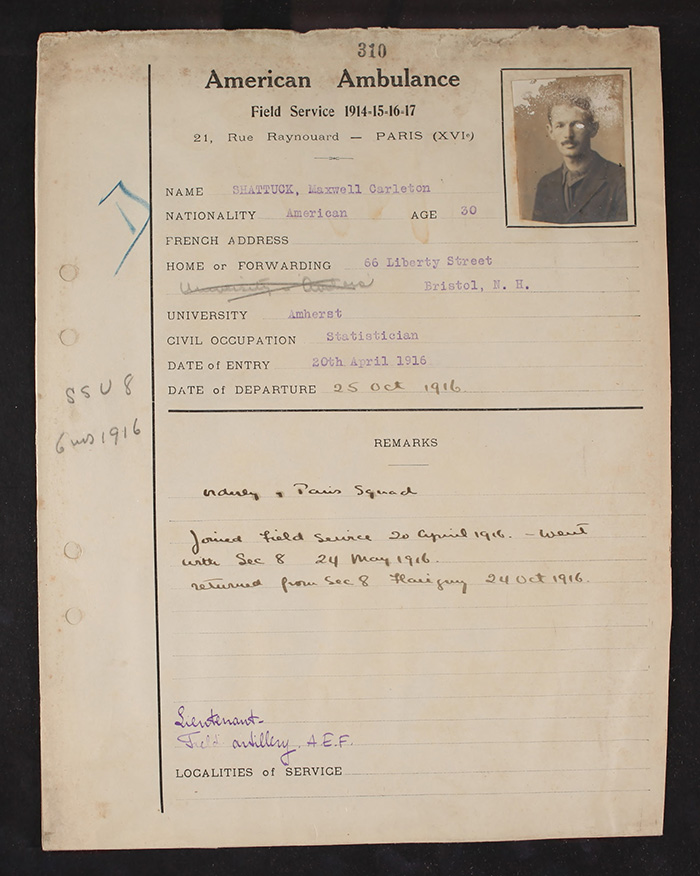 310
American Ambulance
Field Service 1914-15-16-17
21, Rue Raynouard — PARIS (XVIe)
NAME SHATTUCK, Maxwell Carleton
NATIONALITY American AGE 30
FRENCH ADDRESS
HOME or FORWARDING 66 Liberty Street
Bristol, N. H.
UNIVERSITY Amherst
CIVIL OCCUPATION Statistician
DATE of ENTRY 20th April 1916
DATE of DEPARTURE 25 Oct 1916
SSU 8
6 mos 1916
REMARKS
Paris Squad
Joined Field Service 20 April 1916. - Went
with Sec 8 24 May 1916.
returned from Sec 8 24 Oct 1916.
Lieutenant-
Field artillery, A.E.F.
LOCALITIES of SERVICE